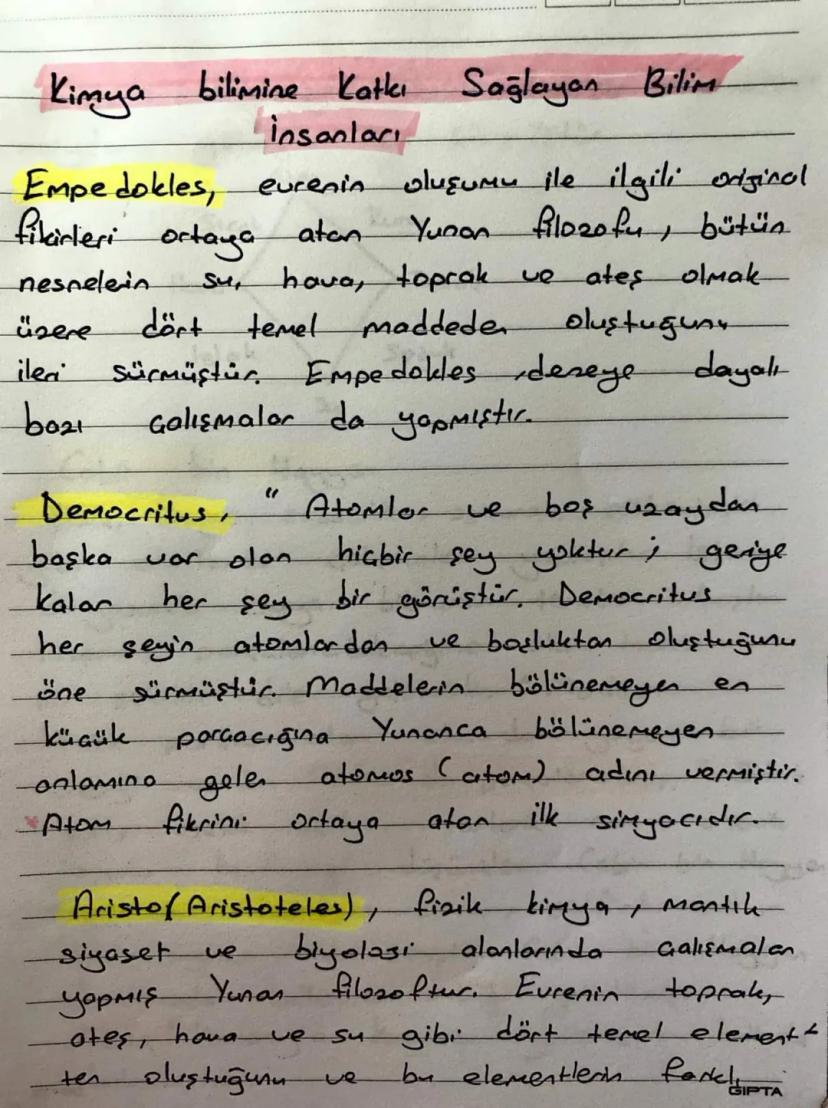 Kimya bilimine Katkı Sağlayan Bilim
İnsanları
Empedokles, evrenin oluşumu ile ilgili original
fikirleri ortaya atan Yunan filozofu, bütün
nesnelerin su, hava, toprak ve ateş olmak
üzere dört temel maddeden oluştuğunu
ileri sürmüştür. Empedokles, deneye dayalı
bazı çalışmalar da yapmıştır.
Democritus, " Atomlar ve boş uzaydan
başka var olan hiçbir şey yoktur ; geriye
kalan her şey bir görüştür. Democritus
her şeyin atomlardan ve boşluktan oluştuğunu
öne sürmüştür. Maddelerin bölünemeyen en
küçük parçacığına Yunanca bölünemeyen
anlamına gelen atomos (atom) adını vermiştir.
*Atom fikrini ortaya atan ilk simyacıdır.
Aristo(Aristoteles), fizik kimya, mantık
siyaset ve biyoloji alanlarında çalışmaları
yapmış Yunan filozoftur. Evrenin toprak,
ateş, hava ve su gibi dört temel element-
ten oluştuğunu ve bu elementlerin farklı
GIPTA